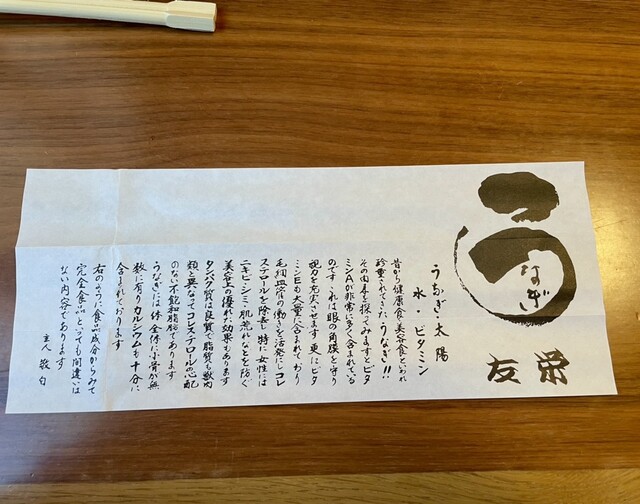 うなぎ
友栄
うなぎ・太陽
水・ビタミン
昔から健康食、美容食といわれ
珍重されてきたうなぎ!!
その内東を探ってみますとビタ
ミンAが非常に多く含まれている
のです これは眼の角膜を守り
視力を充実させます 更にビタ
ミンEも大量に含まれており
毛細血管の働きを活発にしコレ
ステロールを除去し特に女性には
ニキビ・シミ・肌荒れなどを防ぐ
美容上の優れた効果もあります
タンパク質は良質で脂質も獣肉
類と異なってコレステロールの心配
のない不飽和脂肪であります
うなぎには一体全体に小骨が無
数に有りカルシウムも十分に
含まれております
右のように食品成分からみて
完全食品といっても間違いは
ない内容であります
主人敬白